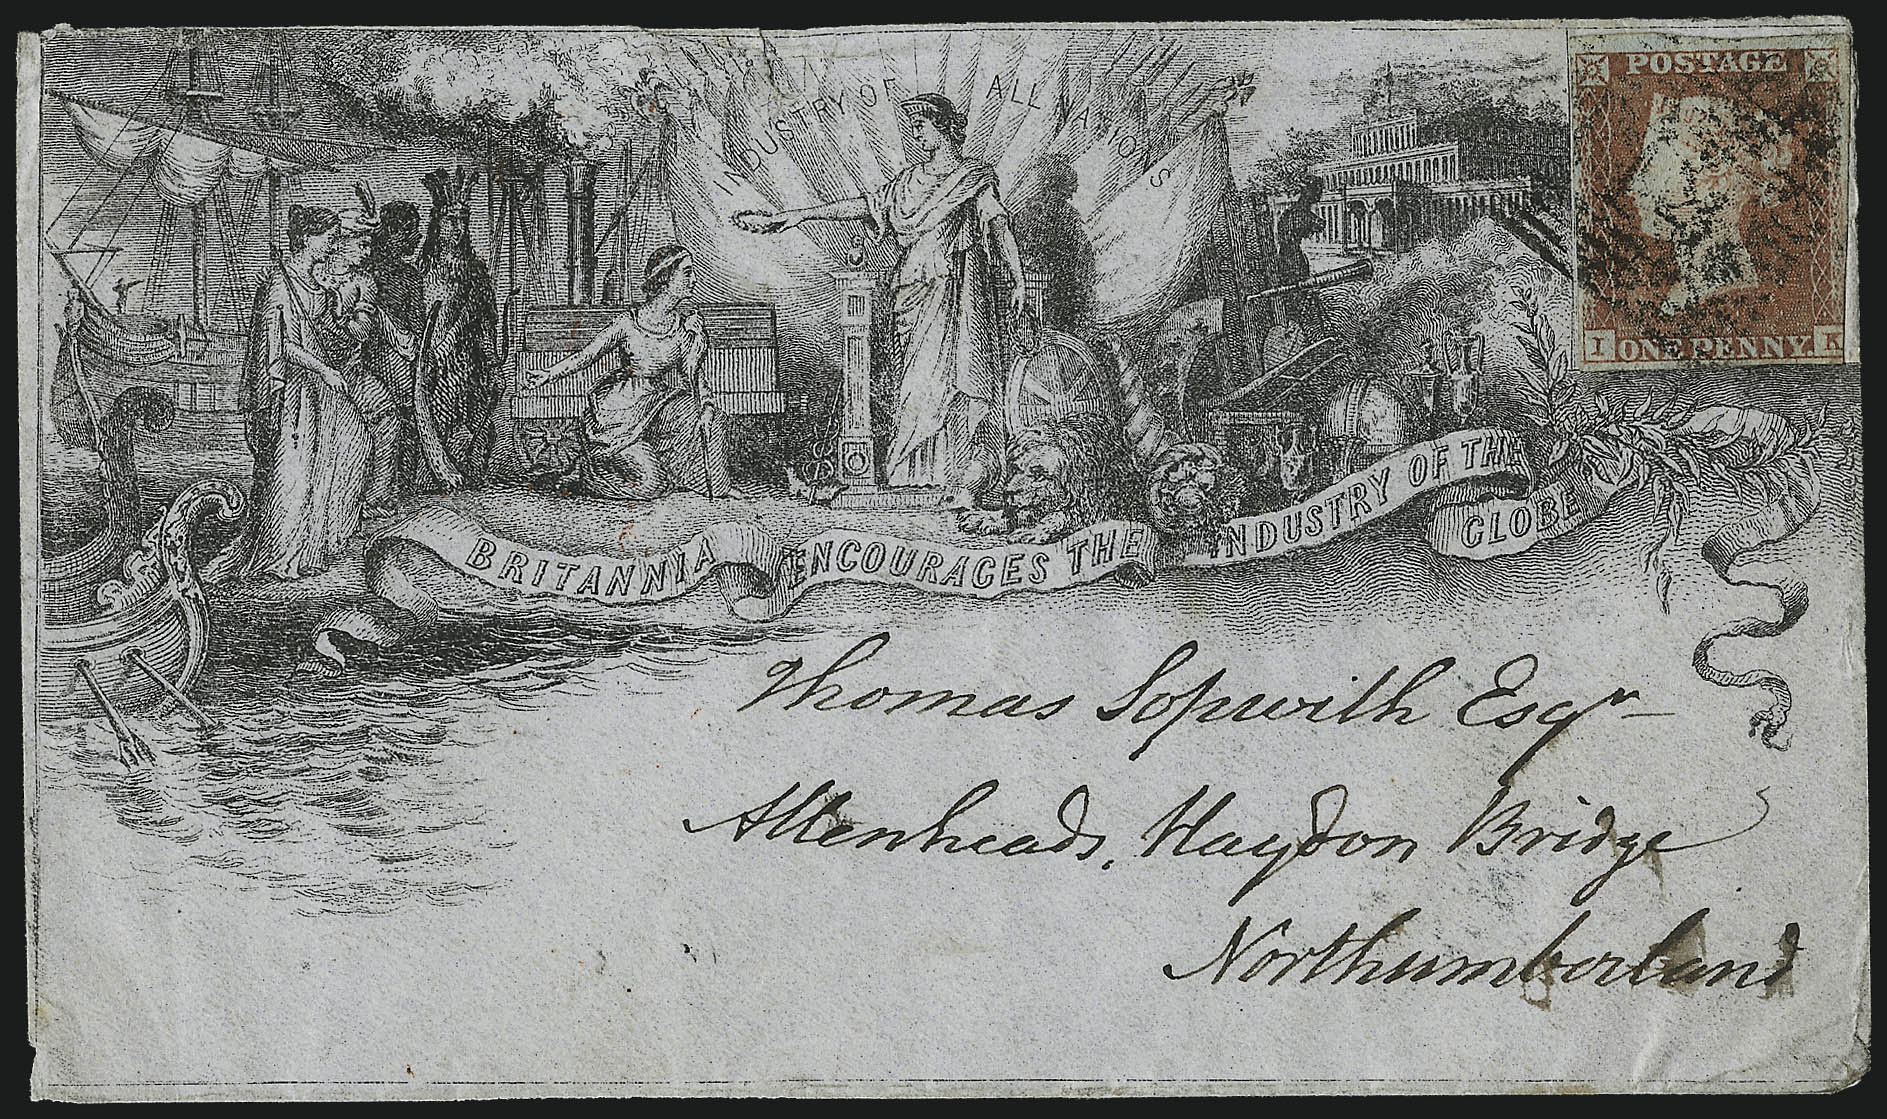 INDUSTRY OF ALL NATIONS
POSTAGE
I ONE PENNY. K
BRITANNIA ENCOURAGES THE INDUSTRY OF THE
GLOBE
Thomas Sopwith Esqr
Allenheads, Haydon Bridge
Northumberland